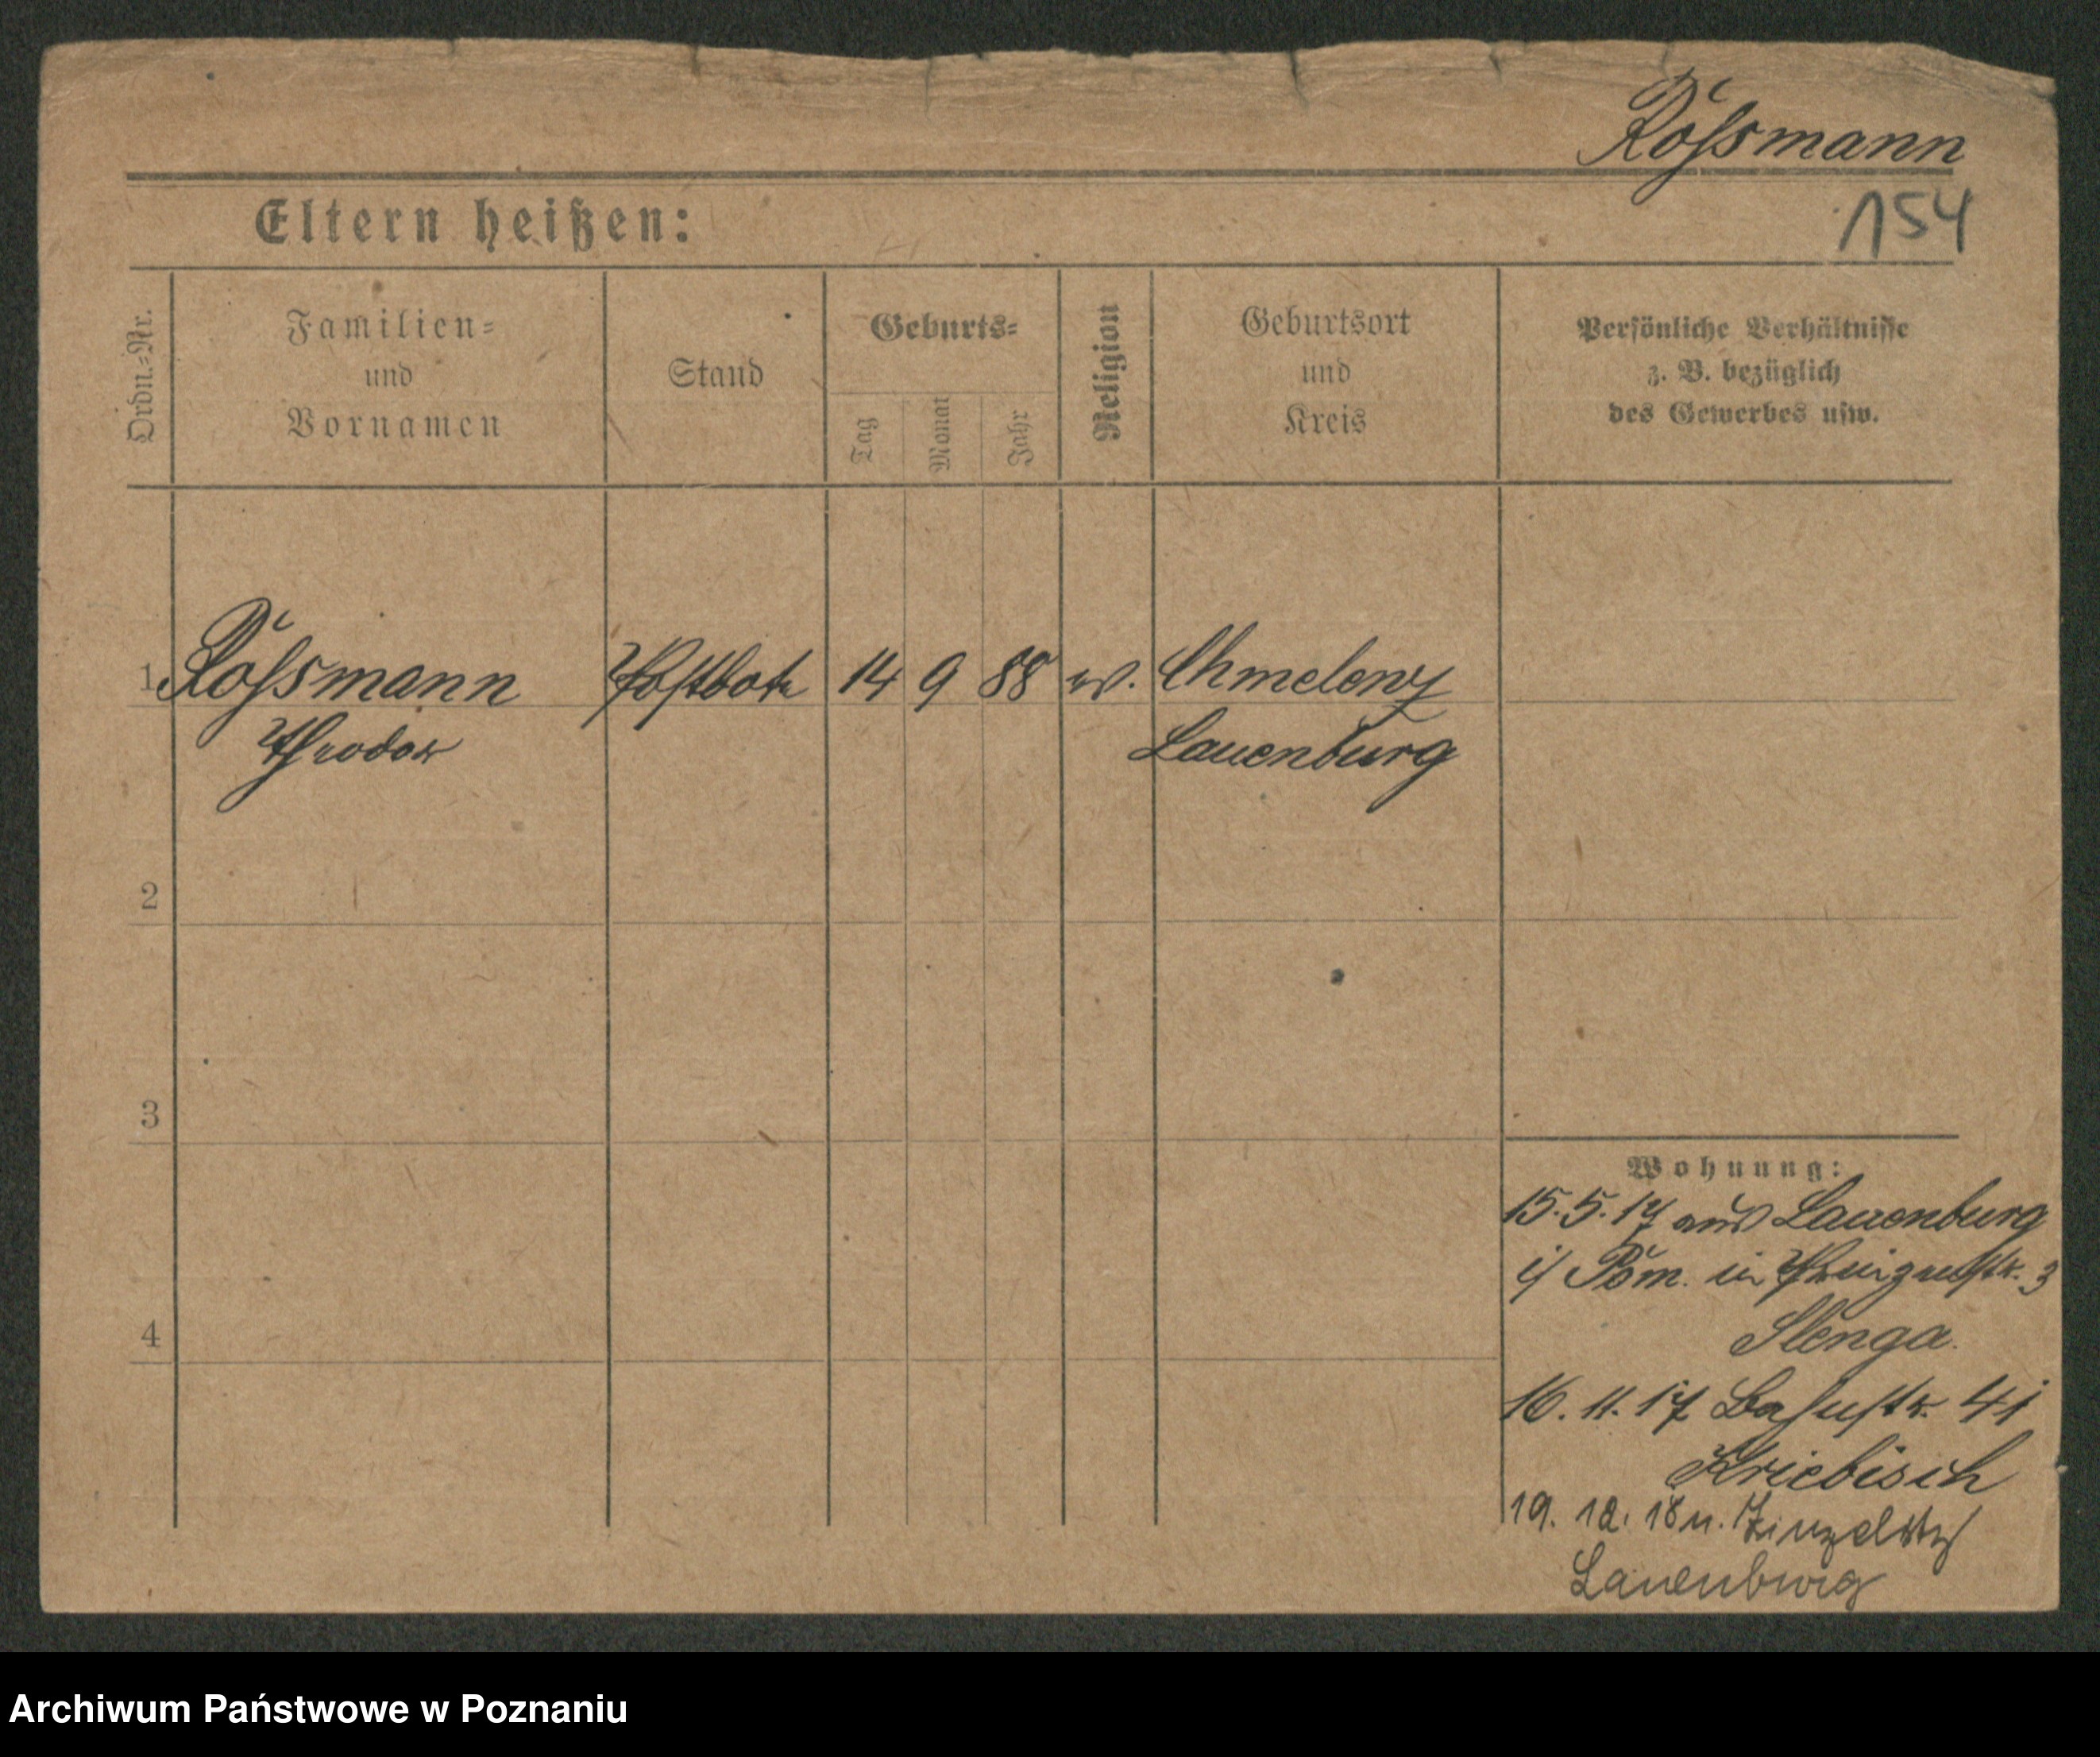 Rossmann
154
Eltern heißen:
Ordn.=Nr.
Familien=
und
Vornamen
Stand
Geburts=
Tag
Monat
Jahr
Religion
Geburtsort
und
Kreis
Persönliche Verhältnisse
z. B. bezüglich
des Gewerbes usw.
1 Rossmann Postbote 14 9 88 ev. Chmelenz
Theodor Lauenburg
2
3
4
Wohnung:
15.5.17 aus Lauenburg
i/ Pom. in 3
Slenga.
16.11.17 Bahnstr. 41
Kriebisch
19. 12. 18 n.
Lauenburg
Archiwum Państwowe w Poznaniu